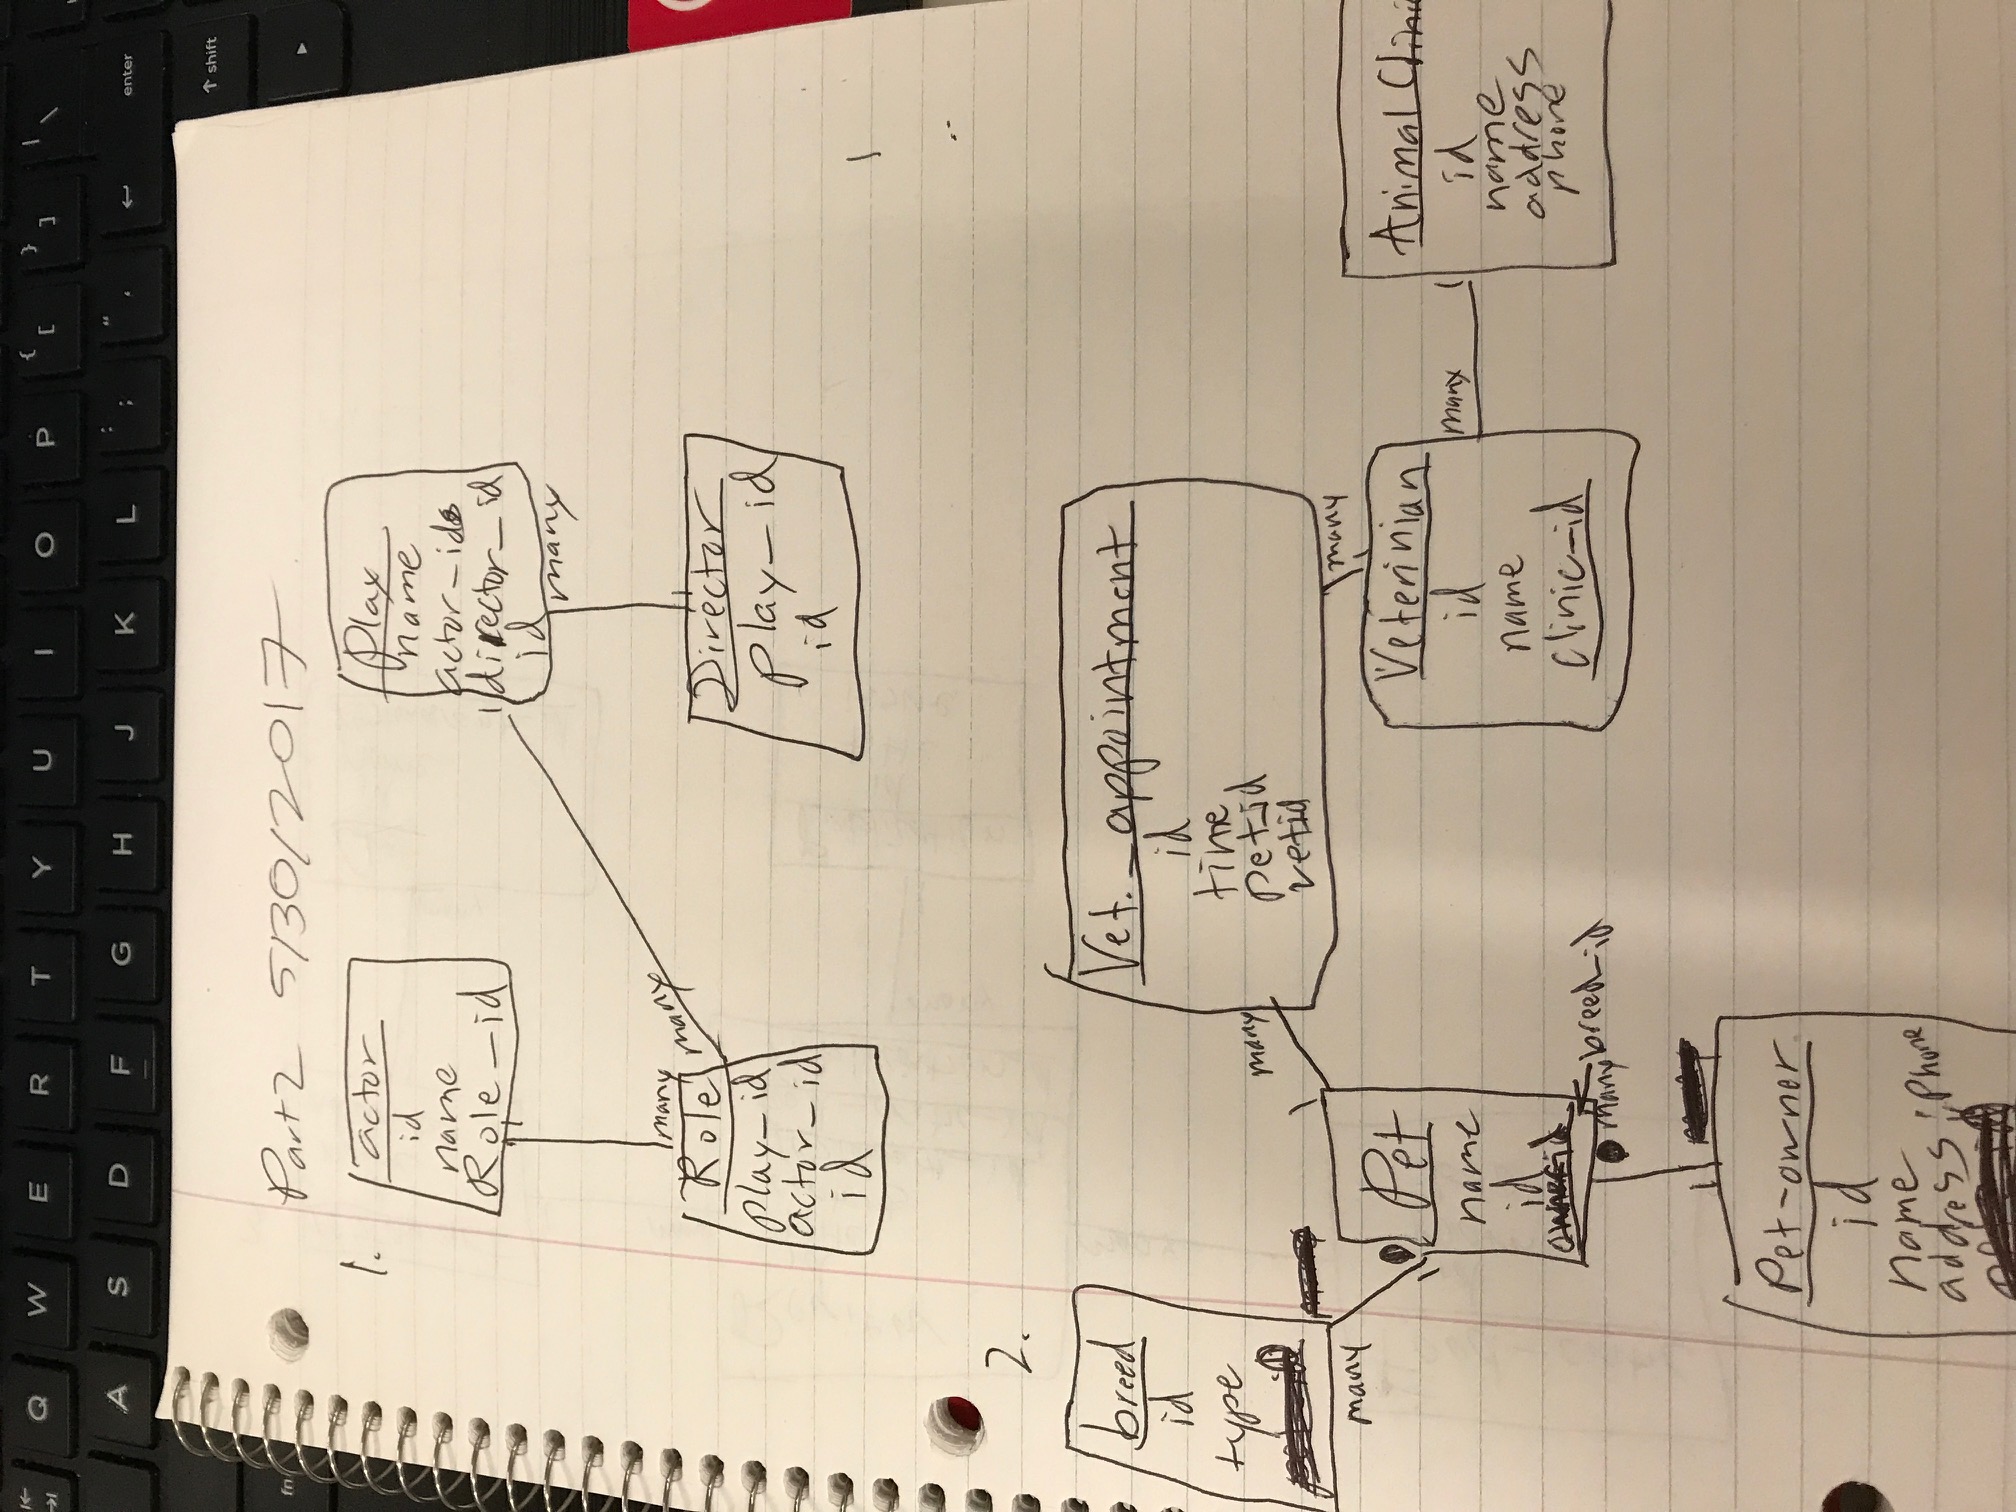 Q W E R T Y U I O P { [ } ] | \
A S D F G H J K L : ; " ' enter
shift
fn
Part 2 5/30/2017
1.
actor
id
name
Role_id
1
many
Play
name
actor_ids
director_id
id
1
many
many
Role
play_id
actor_id
id
1
Director
play_id
id
2.
breed
id
type
many
1
Vet._appointment
id
time
petid
vetid
many
many
1
Pet
name
id
breed_id
many
1
1
Veterinian
id
name
clinic_id
many
1
Animal Clinic
id
name
address
phone
Pet-owner
id
name
address ; Phone